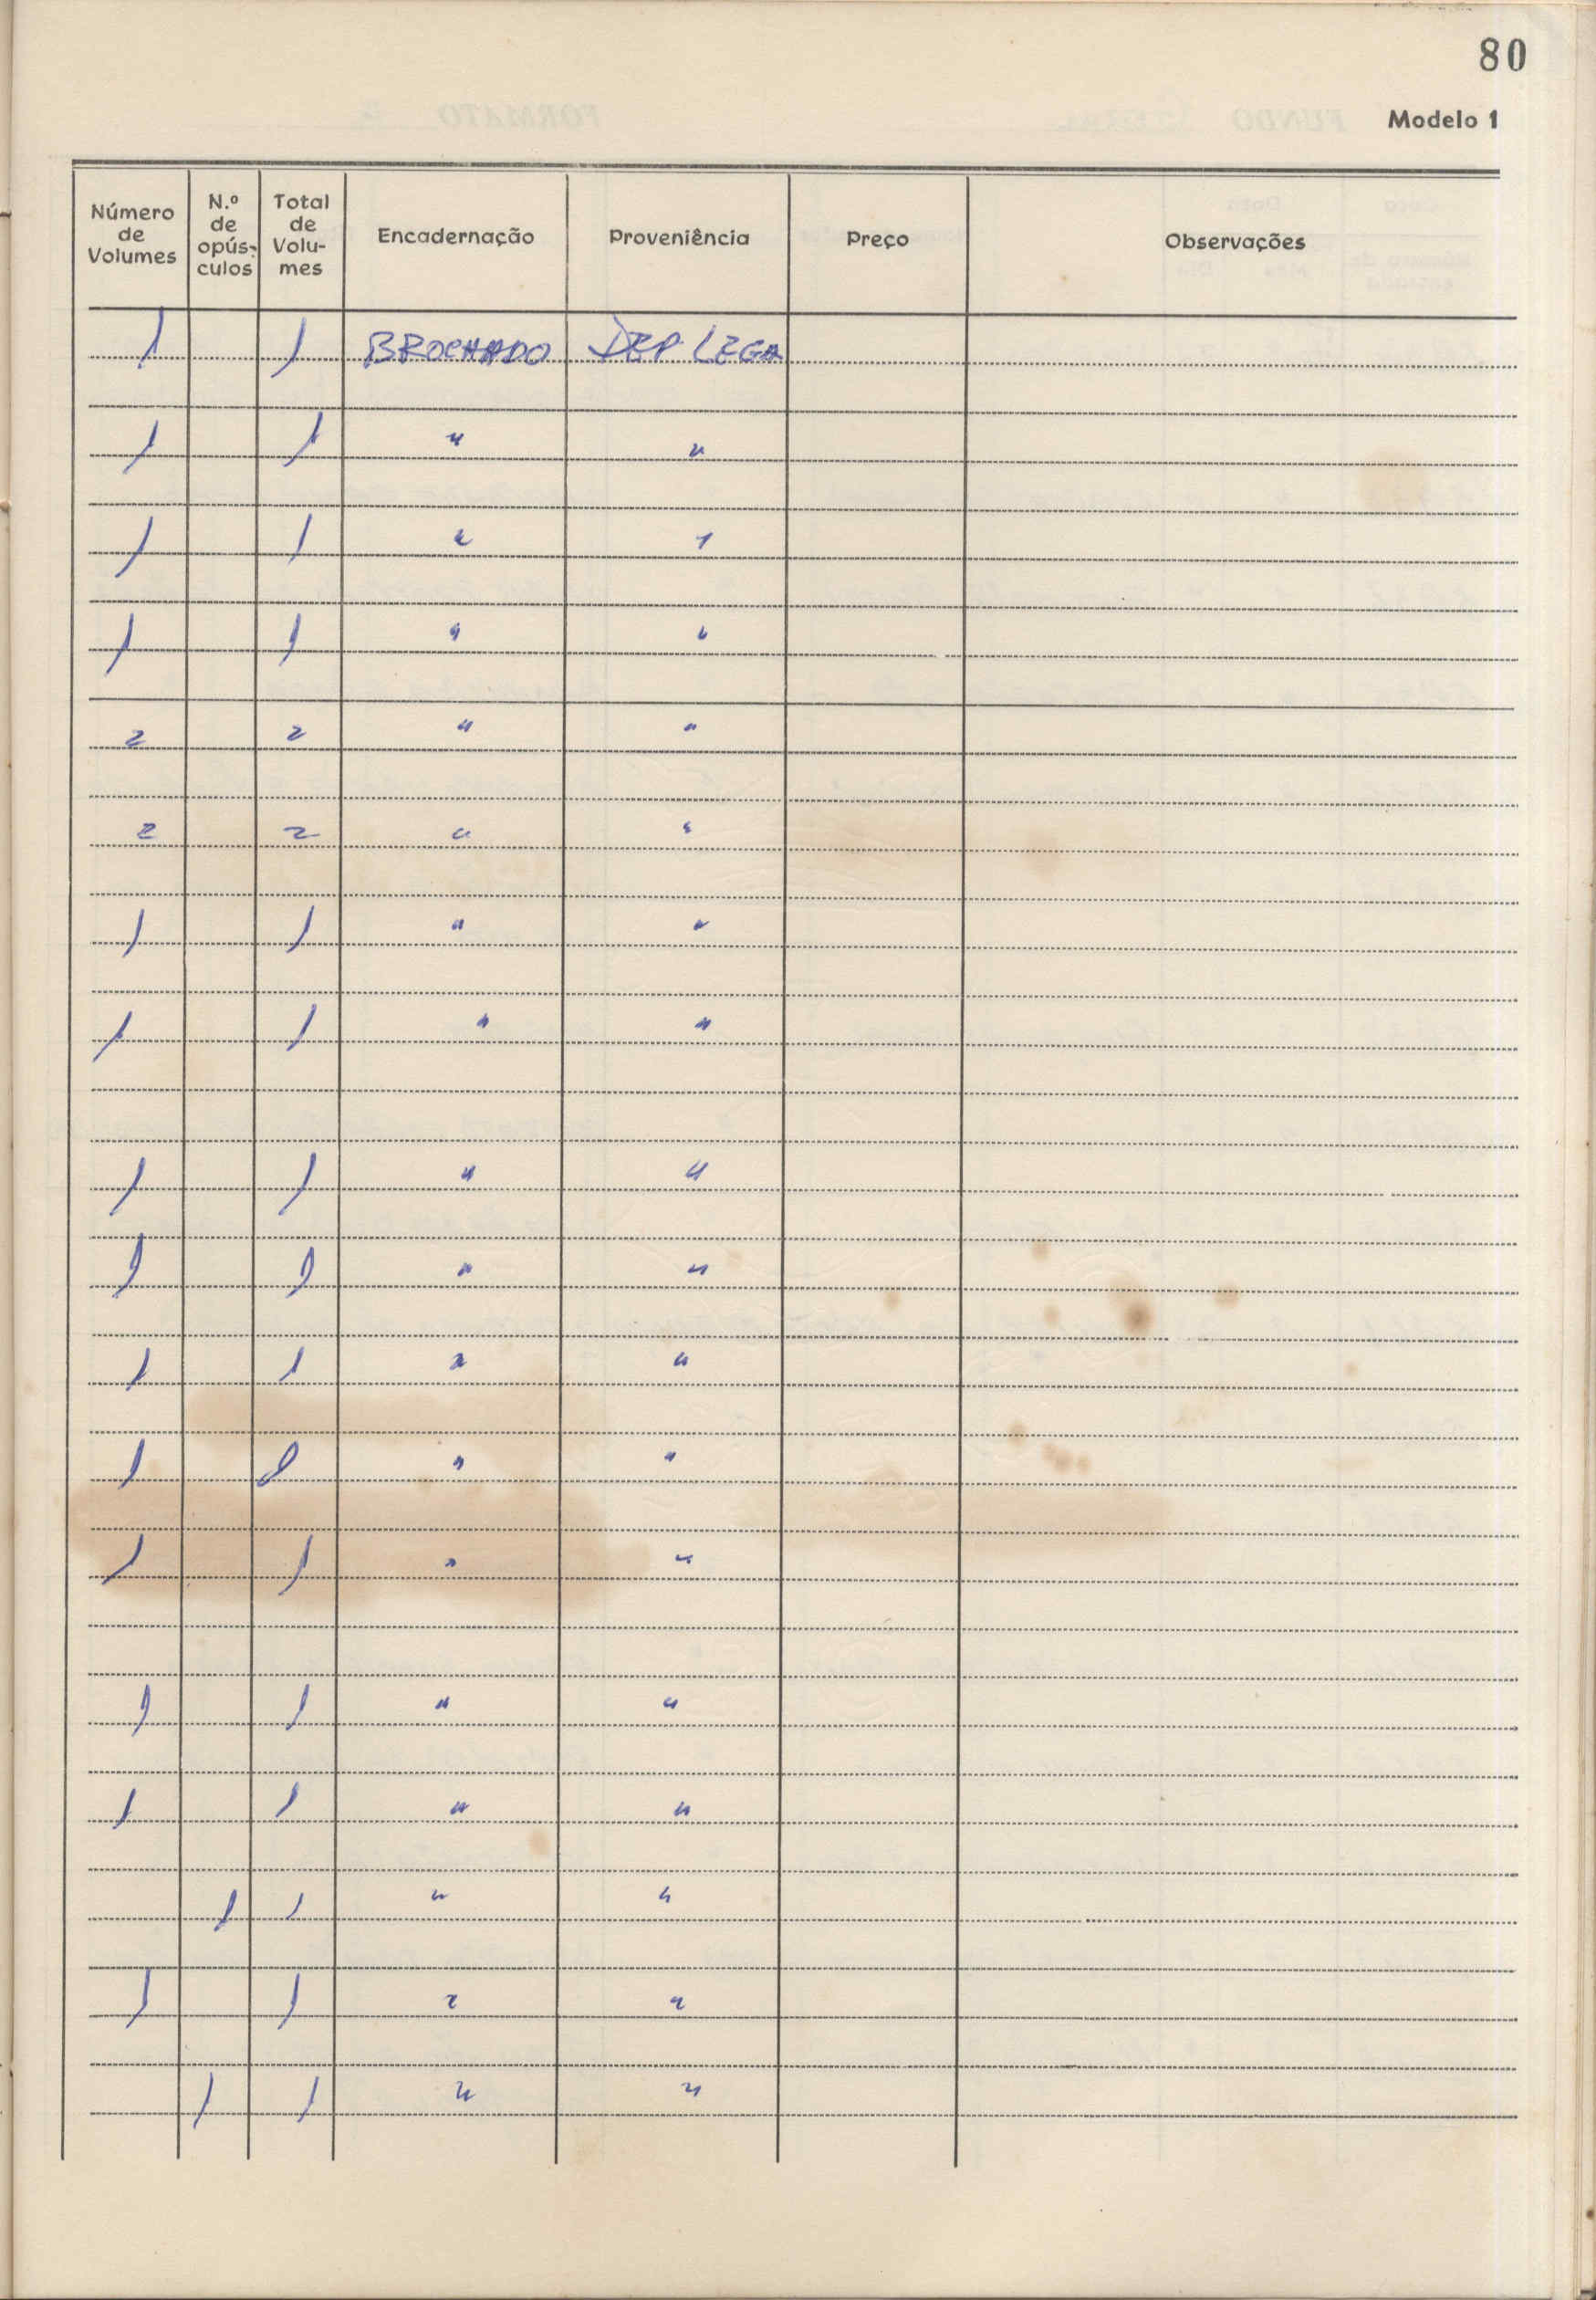 80
Modelo 1
Número de Volumes
N.º de opús- culos
Total de Volu- mes
Encadernação
Proveniência
Preço
Observações
1 1 BROCHADO DEP. LEGA
1 1 " "
1 1 " "
1 1 " "
2 2 " "
2 2 " "
1 1 " "
1 1 " "
1 1 " "
1 1 " "
1 1 " "
1 1 " "
1 1 " "
1 1 " "
1 1 " "
1 1 " "
1 1 " "
1 1 " "